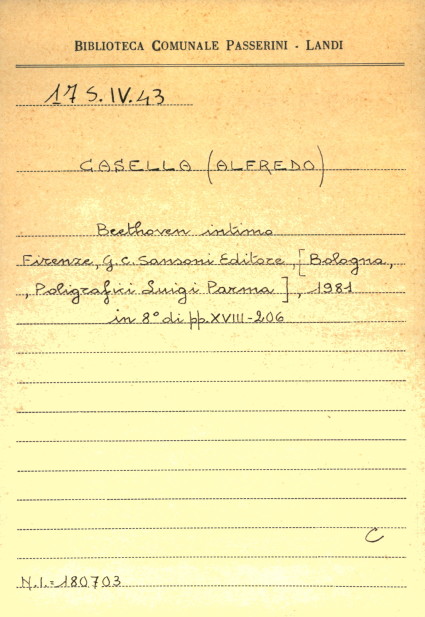 BIBLIOTECA COMUNALE PASSERINI - LANDI
17 S.IV.43
CASELLA (ALFREDO)
Beethoven intimo
Firenze, G.C. Sansoni Editore, [Bologna,
, Poligrafici Luigi Parma], 1981
in 8° di pp. XVIII-206
C
N.I.= 180703